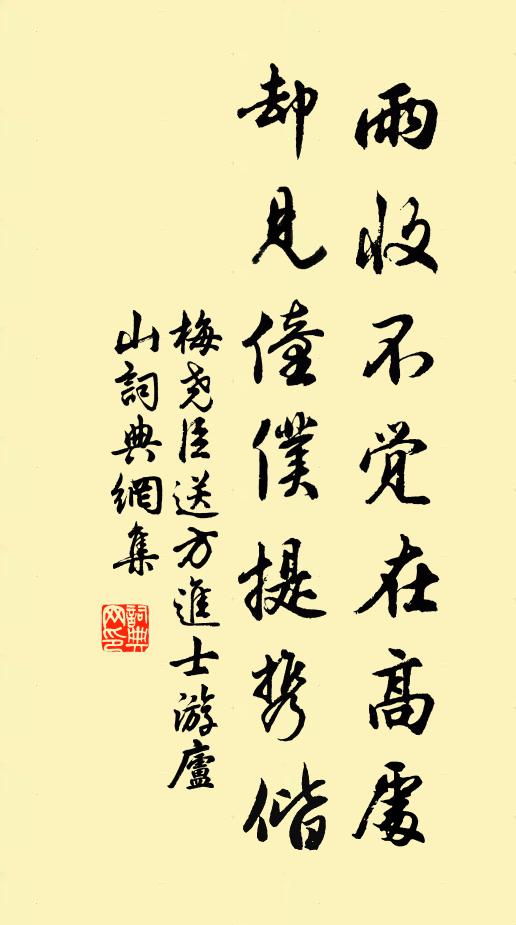 雨收不觉在高處
却見僮僕提携偕
梅尧臣送方進士游廬
山詞典網集
詞典
网印